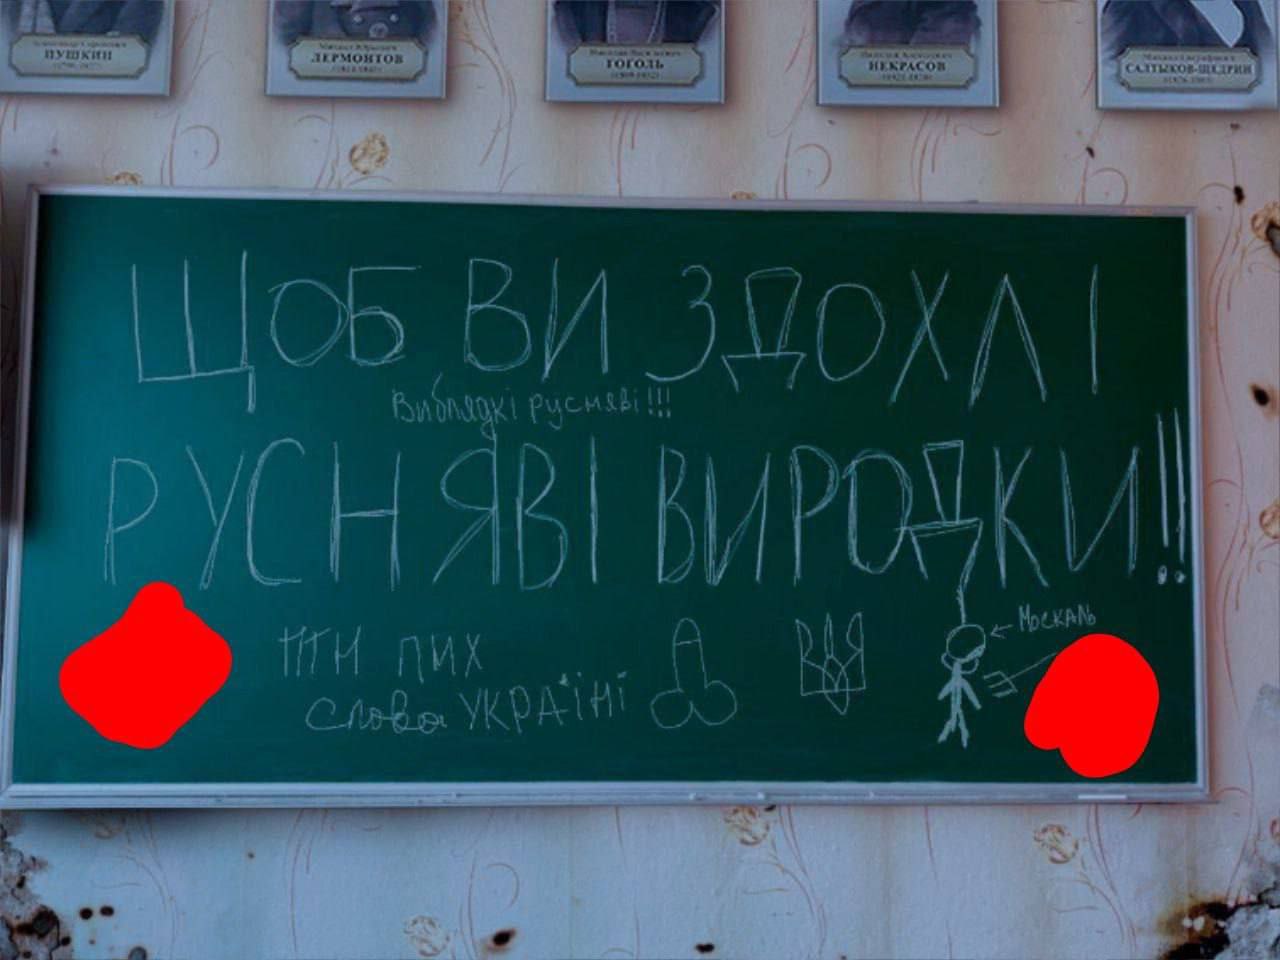 ПУШКИН
ЛЕРМОНТОВ
ГОГОЛЬ
НЕКРАСОВ
САЛТЫКОВ-ЩЕДРИН
ЩОБ ВИ ЗДОХЛІ
Виблядкі русняві!!!
РУСНЯВІ ВИРОДКИ!!
ПТН ПНХ
слава УКРАЇНІ
← Москаль